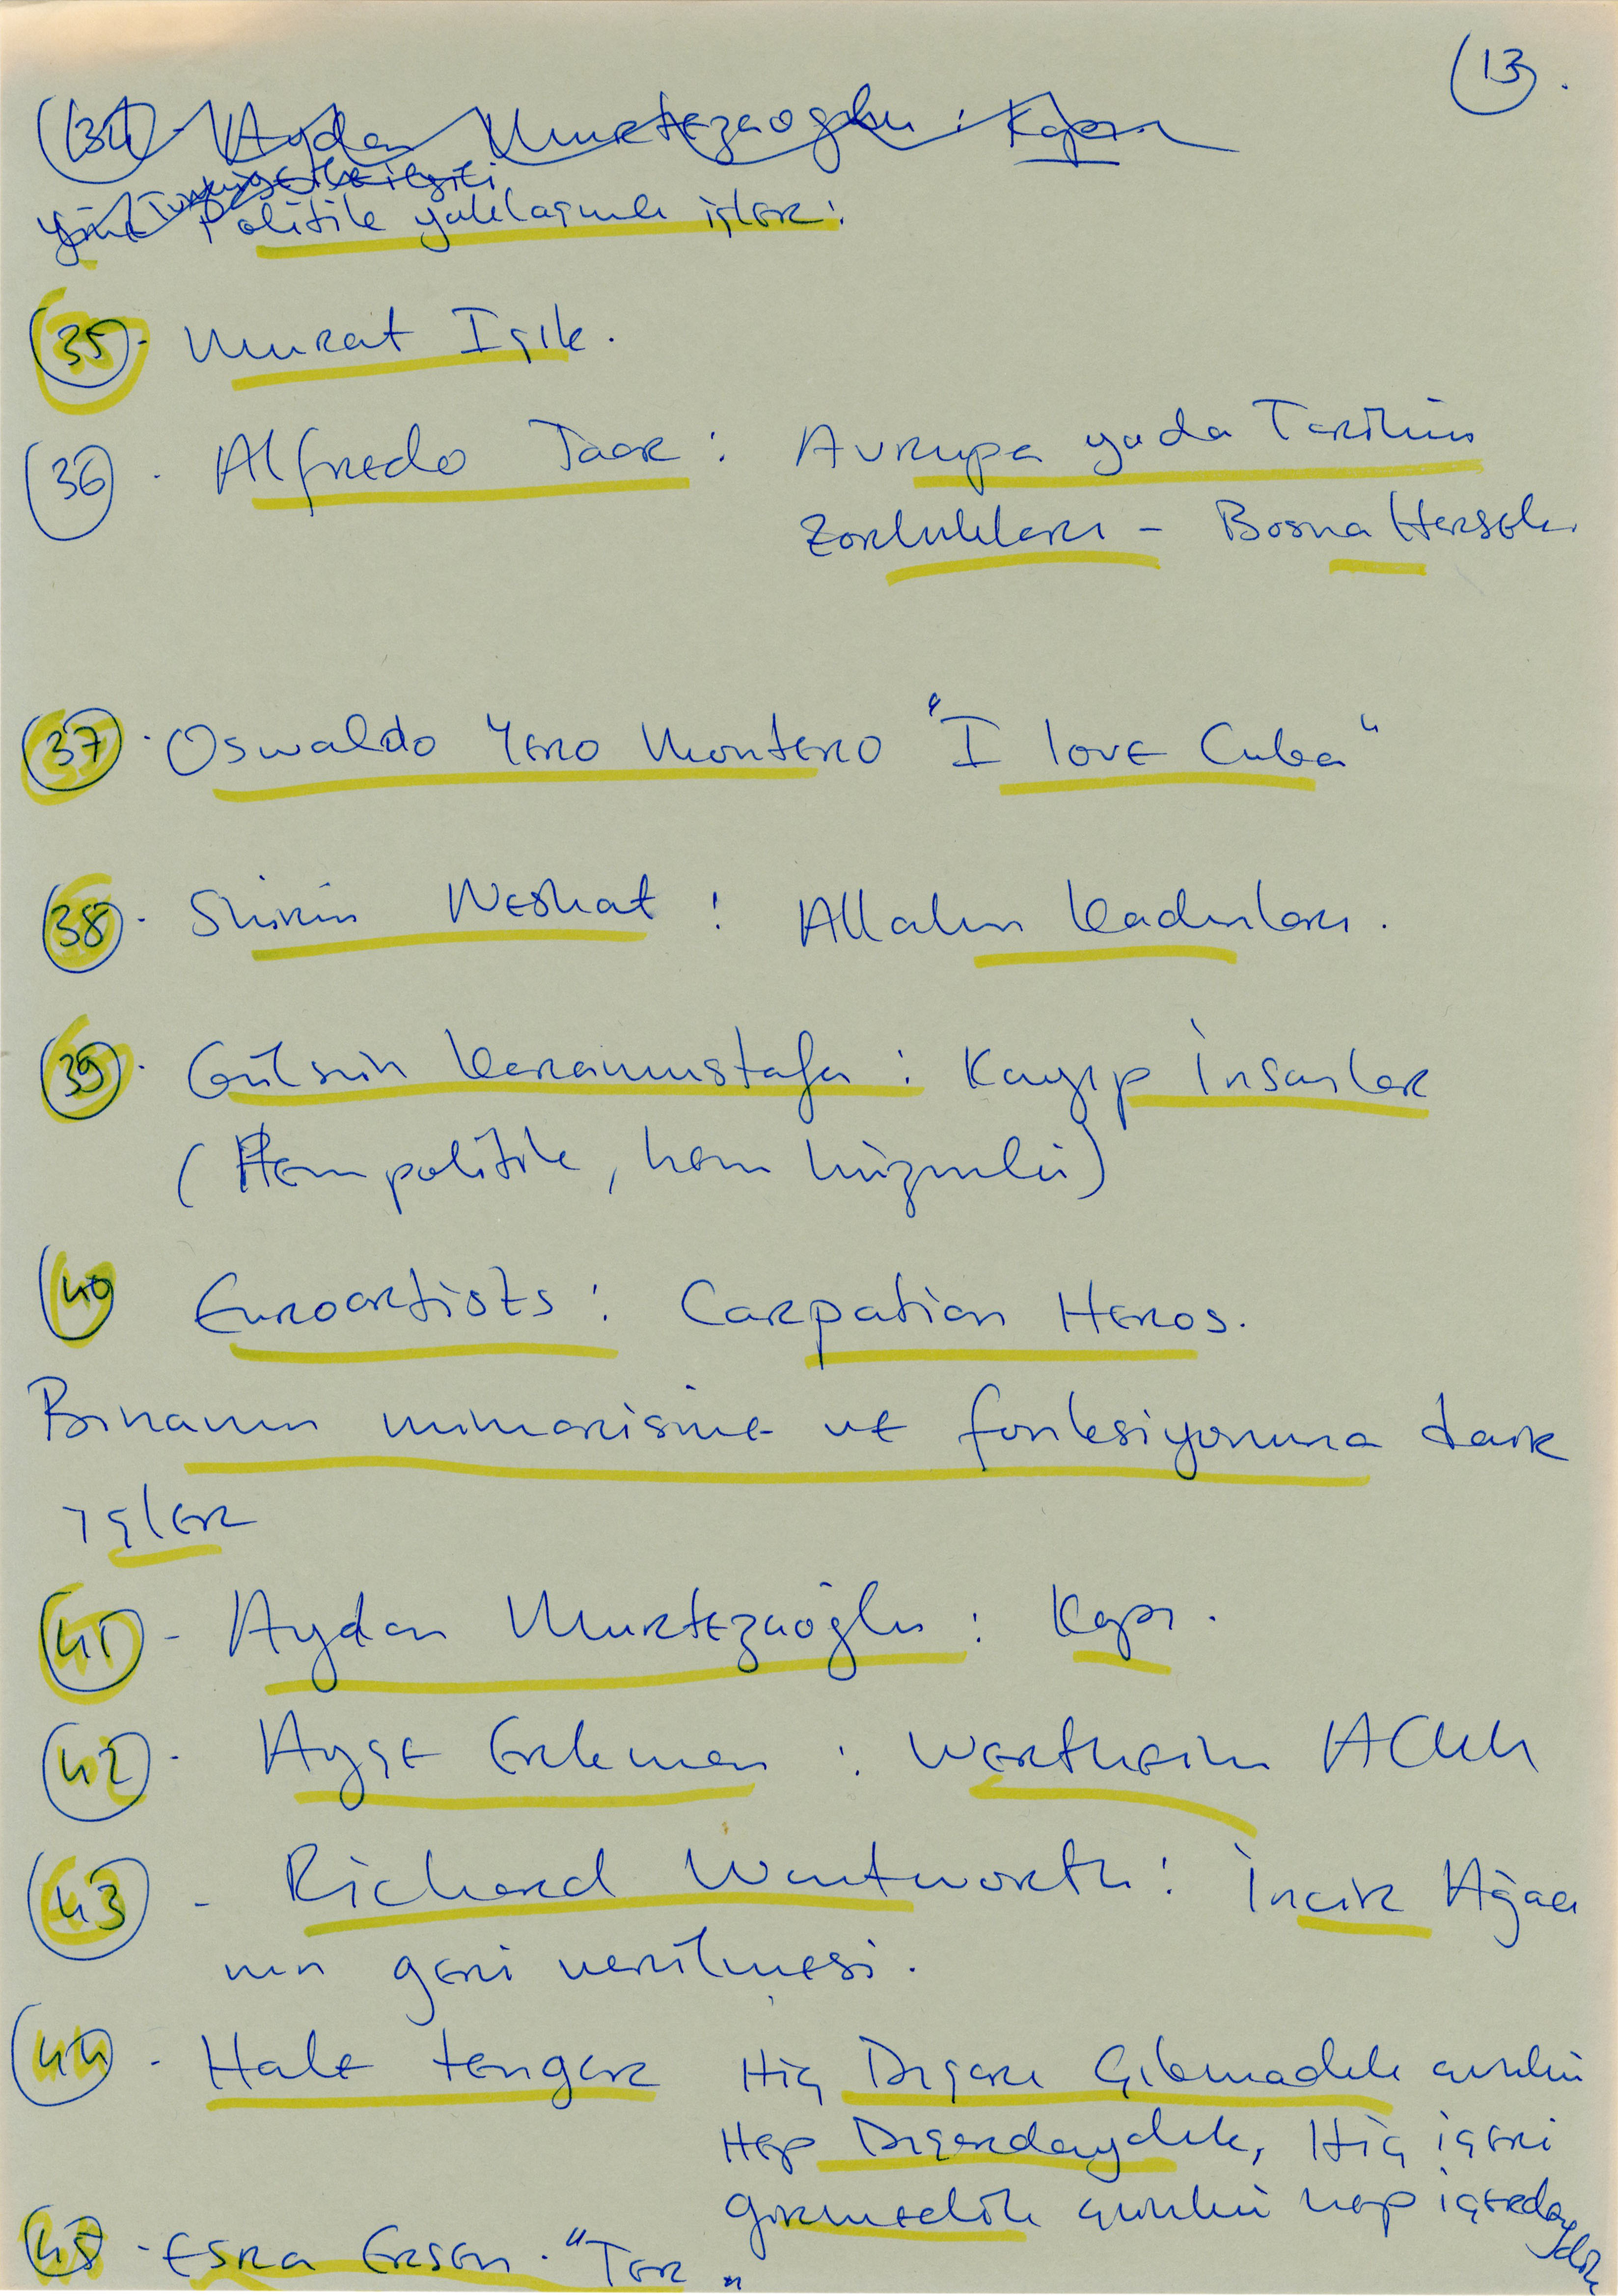 13.
34 - Aydan Murtezaoğlu : Kapı
Yine Türkiye ile ilgili
Politik yaklaşımlı işler:
35 - Murat Işık.
36 - Alfredo Jaar : Avrupa yada Tarihin
Zorlukları - Bosna Hersek.
37 - Oswaldo Yero Montero "I love Cuba"
38 - Shirin Neshat : Allahın Kadınları.
39 - Gülsün Karamustafa : Kayıp İnsanlar
(Hem politik, hem hüzünlü)
40 Euroartists : Carpatian Heros.
Binanın mimarisine ve fonksiyonuna dair
işler
41 - Aydan Murtezaoğlu : Kapı.
42 - Ayşe Erkmen : Wertheim ACUU
43 - Richard Wentworth : İncir Ağacı
nın geri verilmesi.
44 - Hale Tenger Hiç Dışarı Çıkmadık çünkü
Hep Dışardaydık, Hiç içeri
girmedik çünkü hep içerdeydik
45 - Esra Ersen. "Ter"